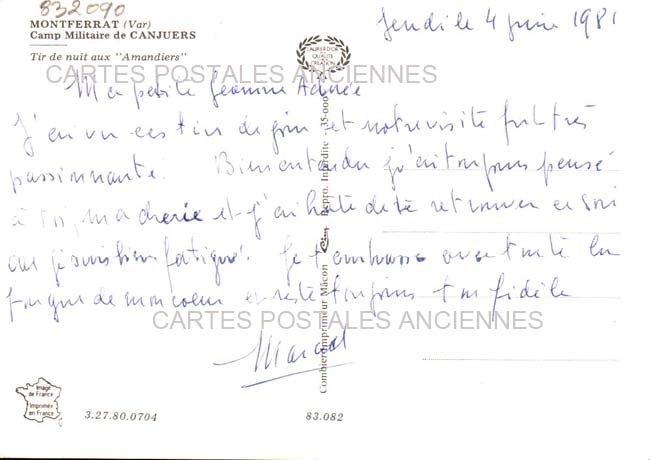 832090
MONTFERRAT (Var)
Camp Militaire de CANJUERS
Tir de nuit aux "Amandiers"
Jeudi le 4 juin 1981
LAURIER D'OR QUALITE CREATION
CARTES POSTALES ANCIENNES
Ma petite Jeanne Adorée
J'ai vu ces tirs de près et notre visite fut très
passionnante. Bien entendu j'ai toujours pensé
à toi, ma cherie et j'ai hâte de te retrouver ce soir
car je suis bien fatigué. Je t'embrasse avec toute la
fougue de mon coeur et reste toujours ton fidèle
CARTES POSTALES ANCIENNES
Marcel
Combier imprimeur Mâcon Repro. Interdite - 35-000
Image de France
Imprimée en France
3.27.80.0704
83.082